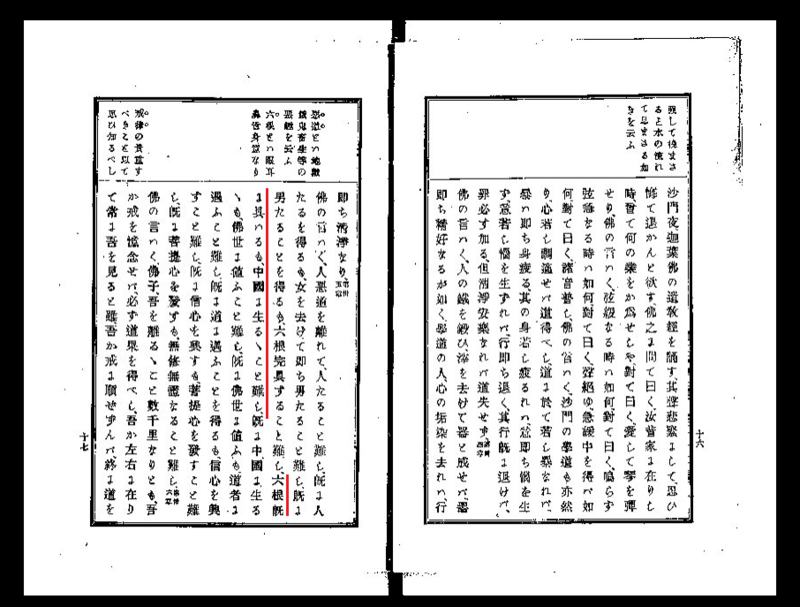 して後まさ
ると水の流れ
て息まさる如
きを云ふ
沙門夜迦葉佛の遺教經を誦す其聲悲緊にして、思ひ
悔て退かんと欲す、佛之に問て曰く汝嘗家に在りし
時、曾て何の業をか爲せしや、對て曰く、愛して琴を彈
せり、佛の言いく、弦緩なる時ハ如何、對て曰く、鳴らず
弦急なる時ハ如何、對て曰く、聲絕ゆ、急緩中を得バ如
何、對て曰く、諸音普し、佛の言いく、沙門の學道も亦然
り、心若し調適せバ道得べし、道に於て若し暴なれバ、
暴ハ即ち身疲る、其の身若し疲るれバ、意即ち惱を生
ず、意若し惱を生ずれバ、行即ち退く、其行既に退けバ、
罪必ず加る、但清淨安樂なれバ道失せず
佛の言いく、人の鐵を鍛ひ滓を去けて器と成せバ、器
即ち精好なるが如く、學道の人心の垢染を去れバ、行
十六
惡道とハ地獄
餓鬼畜生等の
惡趣を云ふ
六根とハ眼耳
鼻舌身意なり
戒律の貴重す
べきこと以て
思ひ知るべし
即ち淸淨なり、
佛の言いく、人惡道を離れて、人たること難し、既に人
たるを得るも女を去けて即ち男たること難し、既に
男たることを得るも六根完具すること難し、六根既
に具いるも、中國に生るゝこと難し、既に中國に生る
ゝも、佛世に値ふこと難し、既に佛世に値ふも、道者に
遇ふこと難し、既に道に遇ふことを得るも、信心を興
すこと難し、既に信心を興すも、菩提心を發すこと難
し、既に菩提心を發すも、無修無證なること難し、
佛の言いく、佛子吾を離るゝこと數千里なりとも、吾
か戒を憶念せバ、必ず道果を得べし、吾か左右に在り
て常に吾を見ると雖、吾か戒に順せずんバ、終に道を
十七